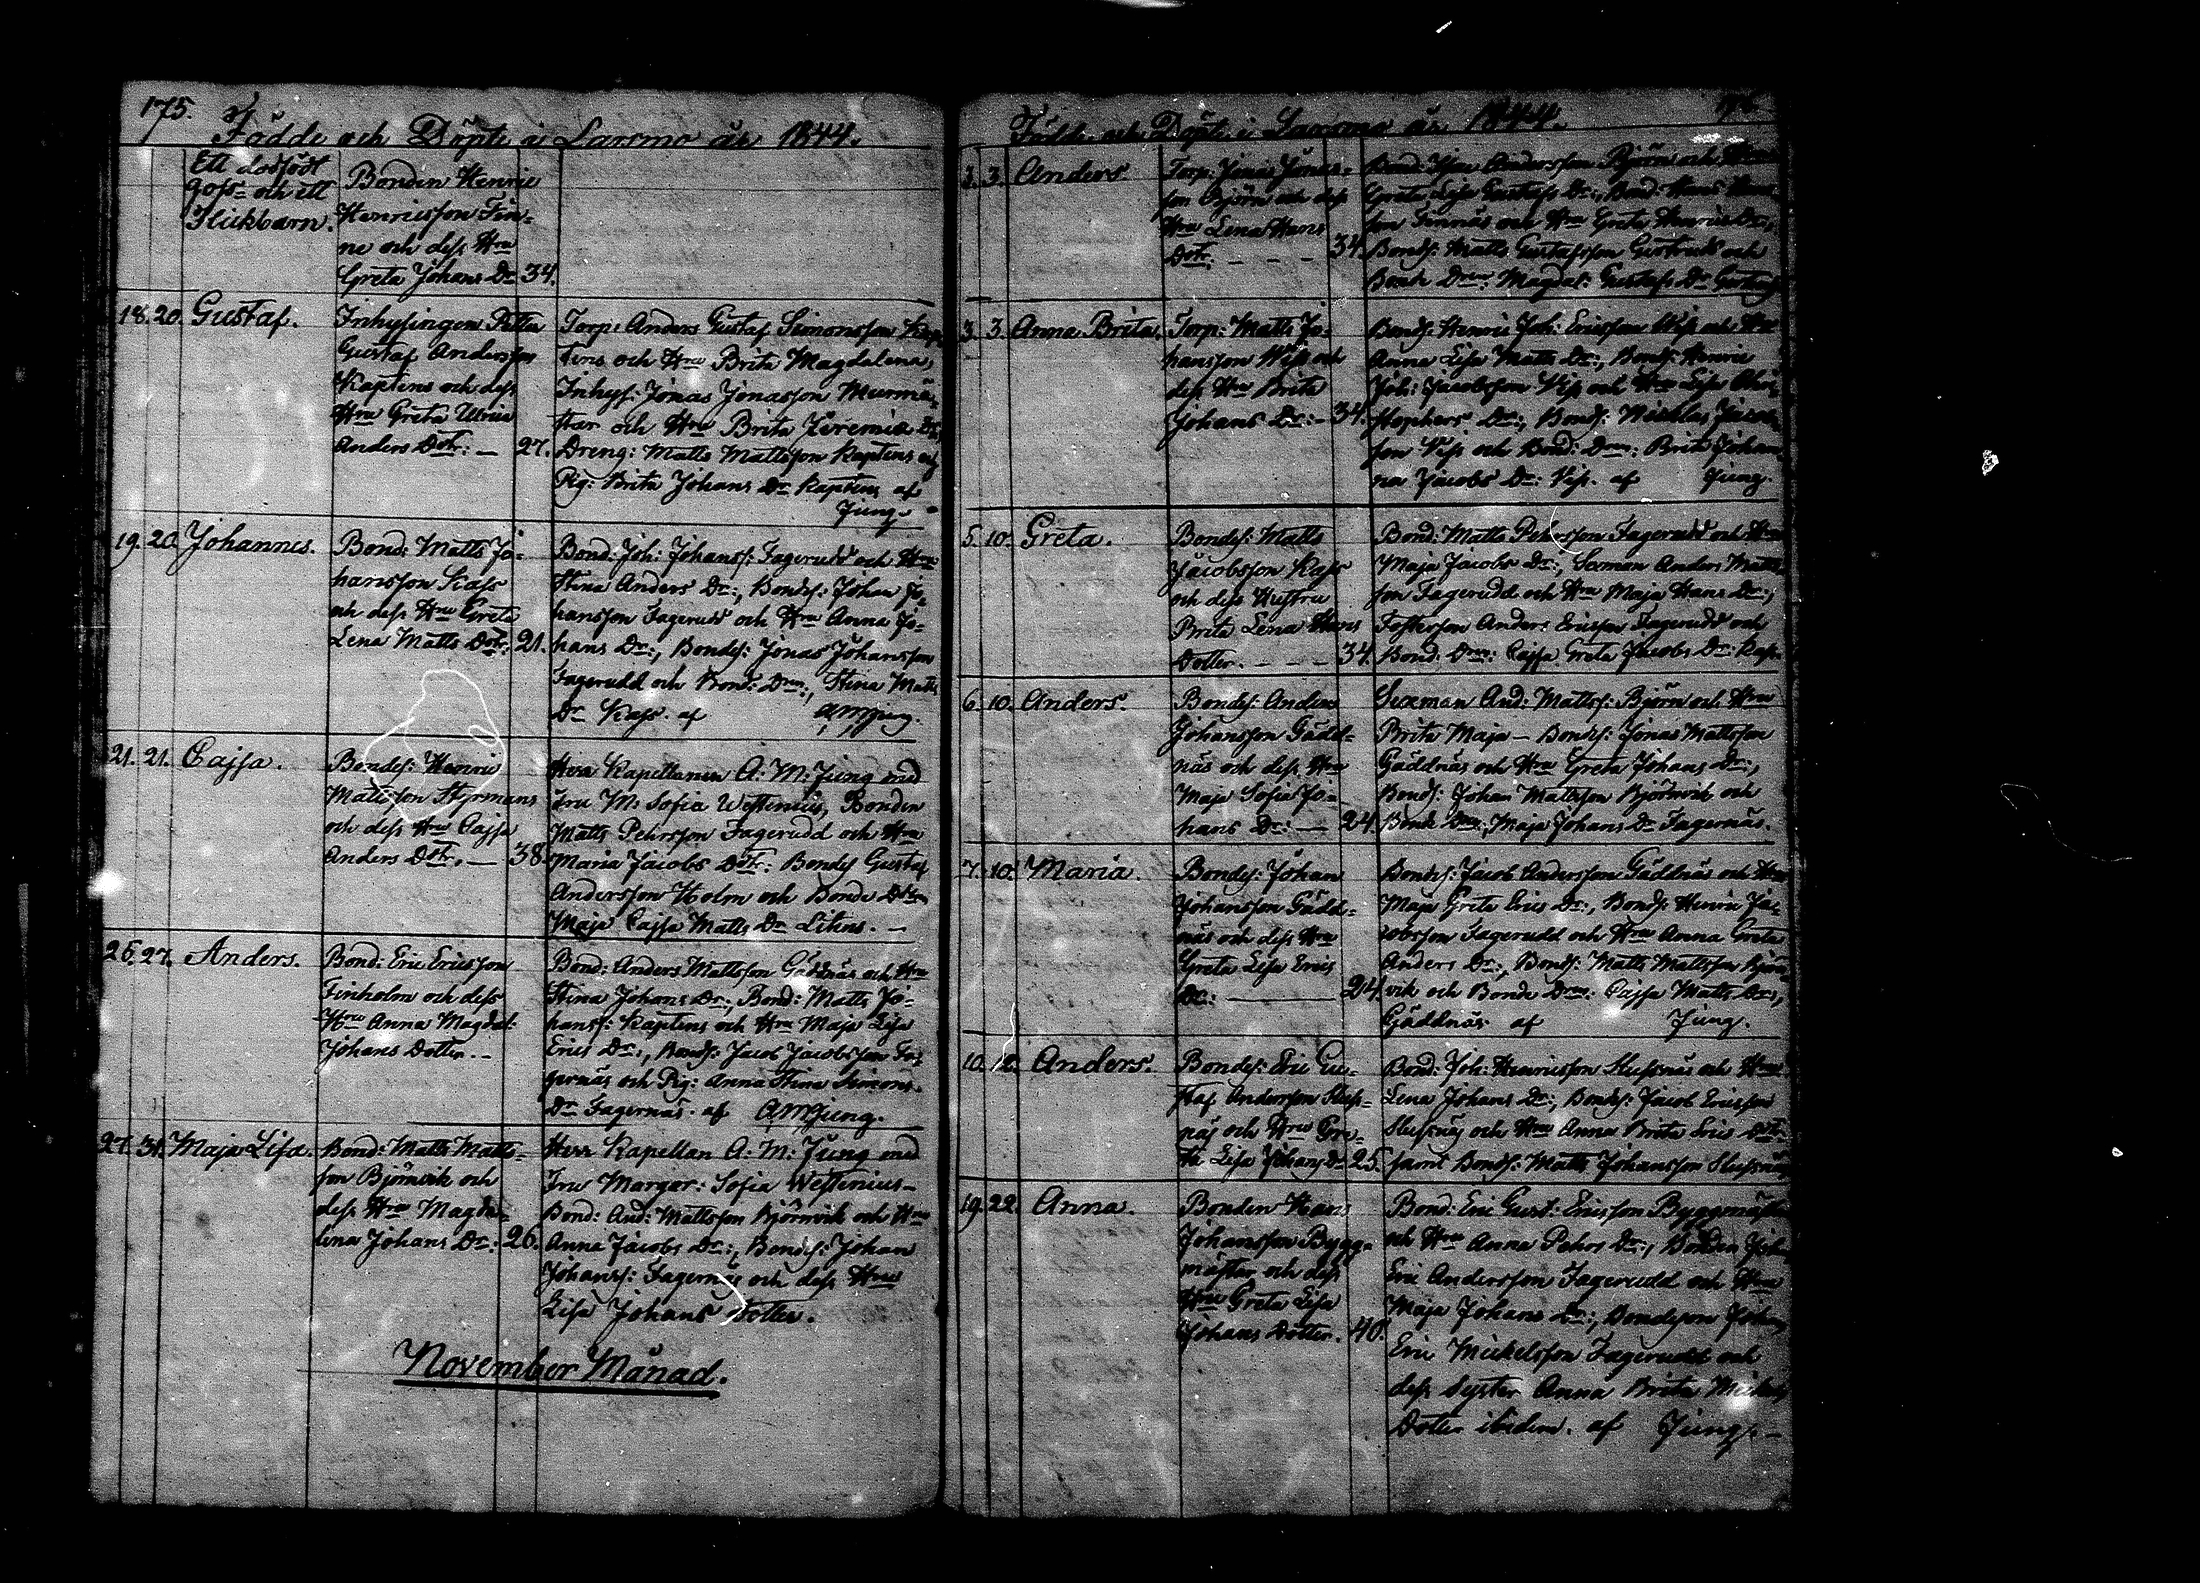 175.
Födde och Döpte i Larsmo år 1844.
Ett dödfödt
goss- och ett
Flickbarn.
Bonden Henric
Henricsson Fin-
ne och dess Hru
Greta Johans Dr 34.
18. 20. Gustaf.
Inhysingen Petter
Gustaf Andersson
Kaptens och dess
Hru Greta Ulrica
Anders Dotr: — 27.
Torp: Anders Gustaf Simonsson Kap-
tens och Hru Brita Magdalena,
Inhys: Jonas Jonasson Murmä-
star och Hru Brita Jeremia Dr,
Dreng: Matts Mattsson Kaptens och
Pig: Brita Johans Dr Kaptens af
Jung.
19. 20. Johannes.
Bond: Matts Jo-
hansson Kass
och dess Hru Greta
Lena Matts Dotr: 21.
Bond: Joh: Johanss: Fagerudd och Hru
Stina Anders Dr:, Bondes: Johan Jo-
hansson Fagerudd och Hru Anna Jo-
hans Dr:, Bondes: Jonas Johansson
Fagerudd och Bond: Drn:, Stina Matts
Dr Kass. af AMJung.
21. 21. Cajsa.
Bondes: Henric
Mattsson Styrmans
och dess Hru Cajsa
Anders Dotr. — 38.
Herr Kapellanen A: M: Jung med
Fru M: Sofia Westenius, Bonden
Matts Pehrsson Fagerudd och Hru
Maria Jacobs Dotr: Bondes Gustaf
Andersson Holm och Bonde Dottn
Maja Cajsa Matts Dr Lihns. —
26. 27. Anders.
Bond: Eric Ericsson
Finholm och dess
Hru Anna Magdal:
Johans Dotter. —
Bond: Anders Mattsson Gäddnäs och Hru
Stina Johans Dr:, Bond: Matts Jo-
hanss: Kaptens och Hru Maja Lisa
Erics Dr:, Bonds: Jacob Jacobsson Fa-
gernäs och Pig: Anna Stina Simons
Dr Fagernäs. af AMJung.
27. 31. Maja Lisa.
Bond: Matts Matts-
son Björnvik och
dess Hru Magda-
lena Johans Dr: 26.
Herr Kapellan A: M: Jung med
Fru Margar: Sofia Westenius —
Bond: And: Mattsson Björnvik och Hru
Anna Jacobs Dr:, Bondes: Johan
Johanss: Fagernäs och dess Hru
Lisa Johans Dotter.
November Månad.
Födde och Döpte i Larsmo år 1844.
3. 3. Anders
Torp: Jonas Jonas-
son Björn och dess
Hru Lena Hans
Dotr. — — — 34.
Bond: Andersson Björn och Hru
Greta Lisa Gustafs Dr:, Bond: Hans
son Finnäs och Hru Greta Henrics Dr:,
Bonds: Matts Gustafsson Gertruds och
Bonde Drn: Magdal: Gustafs Dr
3. 3. Anna Brita.
Torp: Matts Jo-
hansson Wiss och
dess Hru Brita
Johans Dr: — 34.
Bonds: Henric Joh: Ericsson Wiss och Hru
Anna Lisa Matts Dr:, Bonds: Henric
Joh: Jacobsson Viss och Hru Lisa Chri-
stophers Dr:, Bonds: Michlas
son Viss och Bond: Drn: Brita Johan-
na Jacobs Dr: Viss. af Jung.
5. 10. Greta.
Bondes: Matts
Jacobsson Kass
och dess Hustru
Brita Lena Hans
Dotter. — — — 34.
Bond: Matts Pehrsson Fagerudd och Hru
Maja Jacobs Dr:, Sexman Anders Matts-
son Fagerudd och Hru Maja Hans Dr:,
Fosterson Anders Ericsson Fagerudd och
Bond: Drn: Cajsa Greta Jacobs Dr: Kass.
6. 10. Anders.
Bondes: Anders
Johansson Gädd-
näs och dess Hru
Maja Sofia Jo-
hans Dr: — 24.
Sexman And: Mattss: Björn och Hru
Brita Maja — Bondes: Jonas Mattsson
Gäddnäs och Hru Greta Johans Dr:,
Bonds: Johan Mattsson Björnvik och
Bonde Drn: Maja Johans Dr Fagernäs.
7. 10. Maria.
Bondes: Johan
Johansson Gädd-
näs och dess Hru
Greta Lisa Erics
Dr: — 24.
Bonds: Jacob Andersson Gäddnäs och Hru
Maja Greta Erics Dr:, Bonds: Henric Ja-
cobsson Fagerudd och Hru Anna Greta
Anders Dr:, Bonds: Matts Mattsson Björn-
vik och Bonde Drn: Cajsa Matts Dr:,
Gäddnäs af Jung.
10. 12. Anders.
Bondes: Eric Gu-
staf Andersson Sluss-
näs och Hru Gre-
ta Lisa Johans Dr 25.
Bond: Joh: Henricsson Slussnäs och Hru
Lena Johans Dr:, Bonds: Jacob Ericsson
Slussnäs och Hru Anna Brita Erics Dotr
samt Bonds: Matts Johansson Slussnäs
19. 22. Anna.
Bonden Hans
Johansson Bygg-
mästar och dess
Hru Greta Lisa
Johans Dotter. 40.
Bond: Eric Gust: Ericsson Byggmästar
och Hru Anna Pehrs Dr:, Bonden Joh:
Eric Andersson Fagerudd och Hru
Maja Johans Dr:, Bondeson Johan
Eric Mickelsson Fagerudd och
dess Syster Anna Brita Mickels
Dotter ibidem. af Jung. —